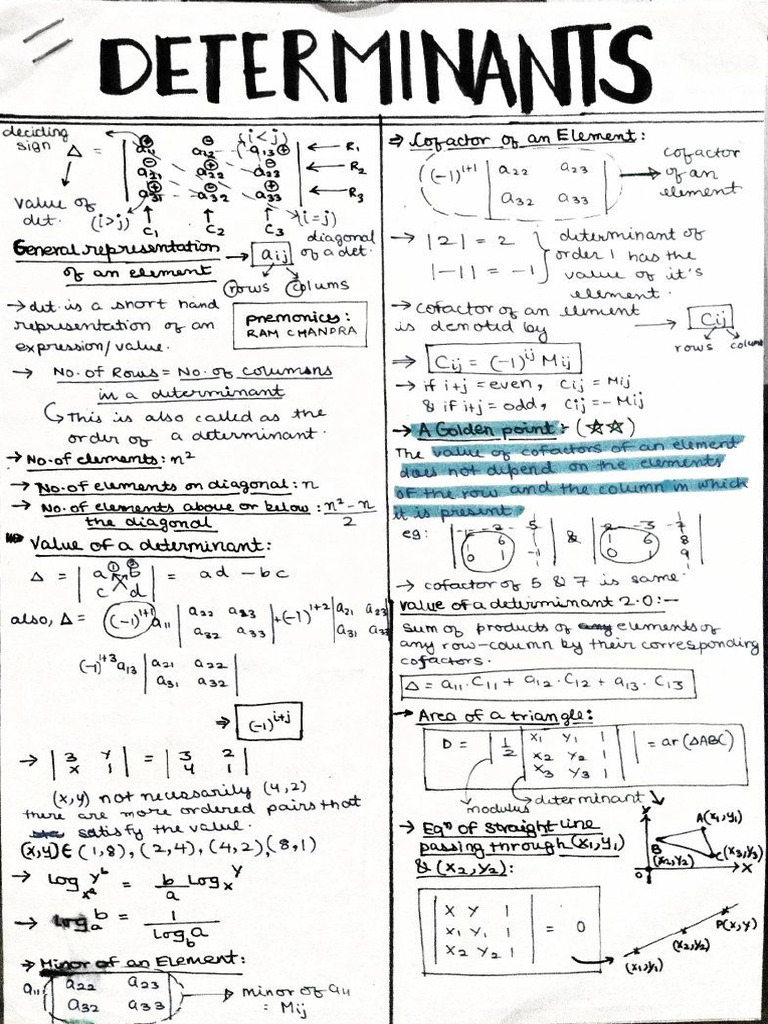 DETERMINANTS
deciding sign
Δ = | a11 a12 a13 | ← R1
| a21 a22 a23 | ← R2
| a31 a32 a33 | ← R3
(i<j)
value of det.
(i>j)
↑ ↑ ↑
C1 C2 C3
(i=j) diagonal of a det.
General representation of an element → aij
rows colums
→ det. is a short hand
representation of an
expression/value.
pnemonics:
RAM CHANDRA
→ No. of Rows = No. of columns
in a determinant
This is also called as the
order of a determinant.
→ No. of elements: n²
→ No. of elements on diagonal: n
→ No. of elements above or below the diagonal : n²-n / 2
Value of a determinant:
Δ = | a b | = ad - bc
| c d |
also, Δ = (-1)^1+1 a11 | a22 a23 | + (-1)^1+2 | a21 a23
| a32 a33 | | a31 a33
(-1)^1+3 a13 | a21 a22 |
| a31 a32 |
⇒ (-1)^i+j
→ | 3 y | = | 3 2 |
| x 1 | | 4 1 |
(x,y) not necessarily (4,2)
there are more ordered pairs that
satisfy the value.
(x,y) ∈ (1,8), (2,4), (4,2), (8,1)
→ Log x^a y^b = b/a Log x y
→ Log a b = 1 / Log b a
→ Minor of an Element:
a11 | a22 a23 | → minor of a11
| a32 a33 | = Mij
⇒ Cofactor of an Element:
(-1)^1+1 | a22 a23 | → cofactor of an element
| a32 a33 |
→ |2| = 2
|-1| = -1
determinant of
order 1 has the
value of it's
element.
→ cofactor of an element
is denoted by → Cij
rows colum
⇒ Cij = (-1)^ij Mij
→ if i+j = even, Cij = Mij
& if i+j = odd, Cij = -Mij
→ A Golden point :- (☆☆)
The value of cofactors of an element
does not depend on the elements
of the row and the column in which
it is present
eg: | -1 -2 5 | & | 2 -3 7 |
| 1 6 8 | | 1 6 8 |
| 0 1 -1 | | 0 1 9 |
→ cofactor of 5 & 7 is same.
Value of a determinant 2.0:-
sum of products of elements of
any row-caumn by their corresponding
cofactors.
Δ = a11.C11 + a12.C12 + a13.C13
→ Area of a triangle:
D = | 1/2 | x1 y1 1 | | = ar(ΔABC)
| x2 y2 1 |
| x3 y3 1 |
modulus
determinant
→ Eqⁿ of straight line
passing through (x1,y1)
& (x2,y2):
Y
A(x1,y1)
B
(x2,y2)
C(x3,y3)
O
X
| x y 1 |
| x1 y1 1 | = 0
| x2 y2 1 |
P(x,y)
(x2,y2)
(x1,y1)